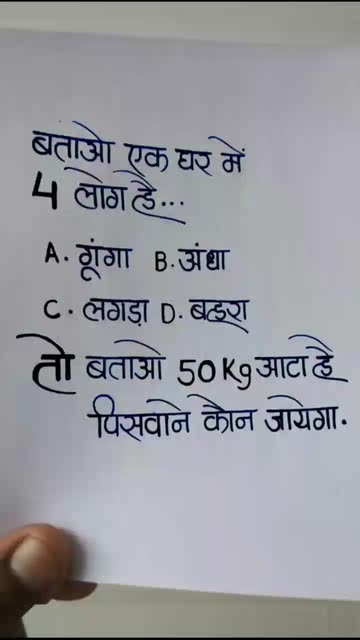 बताओ एक घर में
4 लोग है...
A. गूंगा B. अंधा
C. लगड़ा D. बहरा
तो बताओ 50 Kg आटा है
पिसवाने कौन जायेगा.